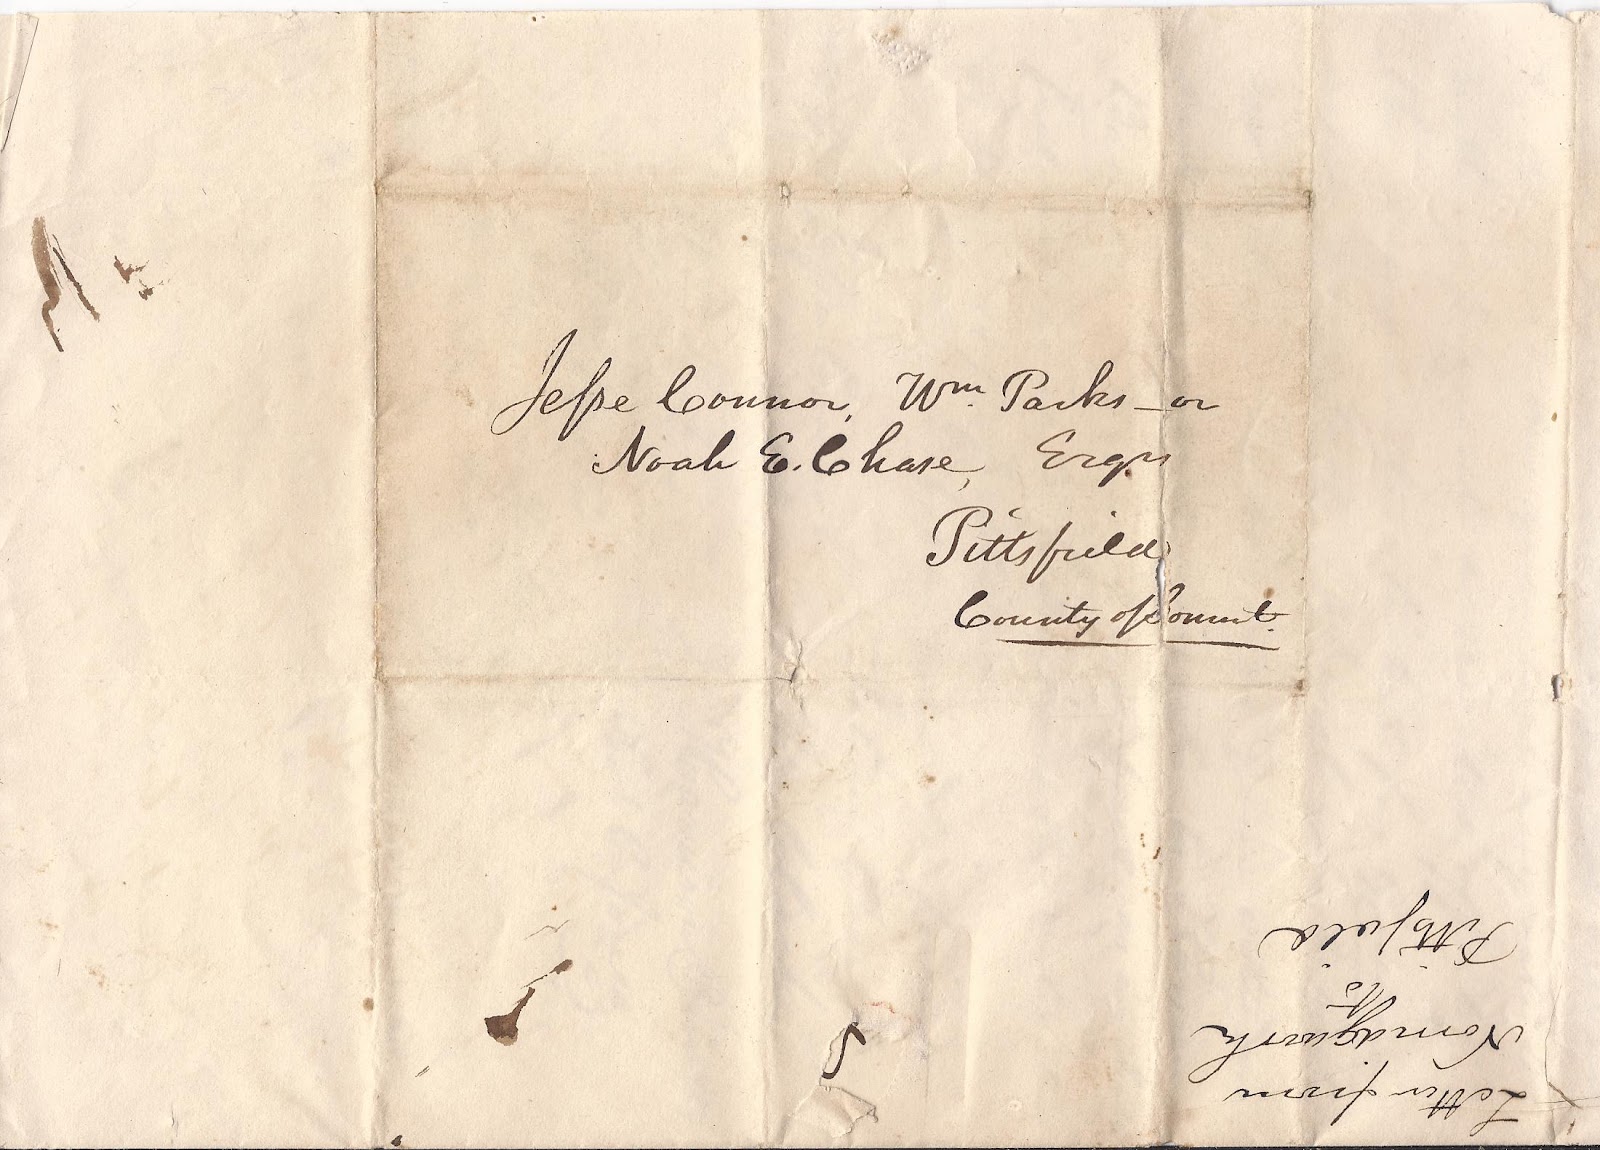 Jesse Connor, Wm. Parks – or
Noah E. Chase, Esqrs
Pittsfield
County of Somerset.
Letter from
vs
Pittsfield